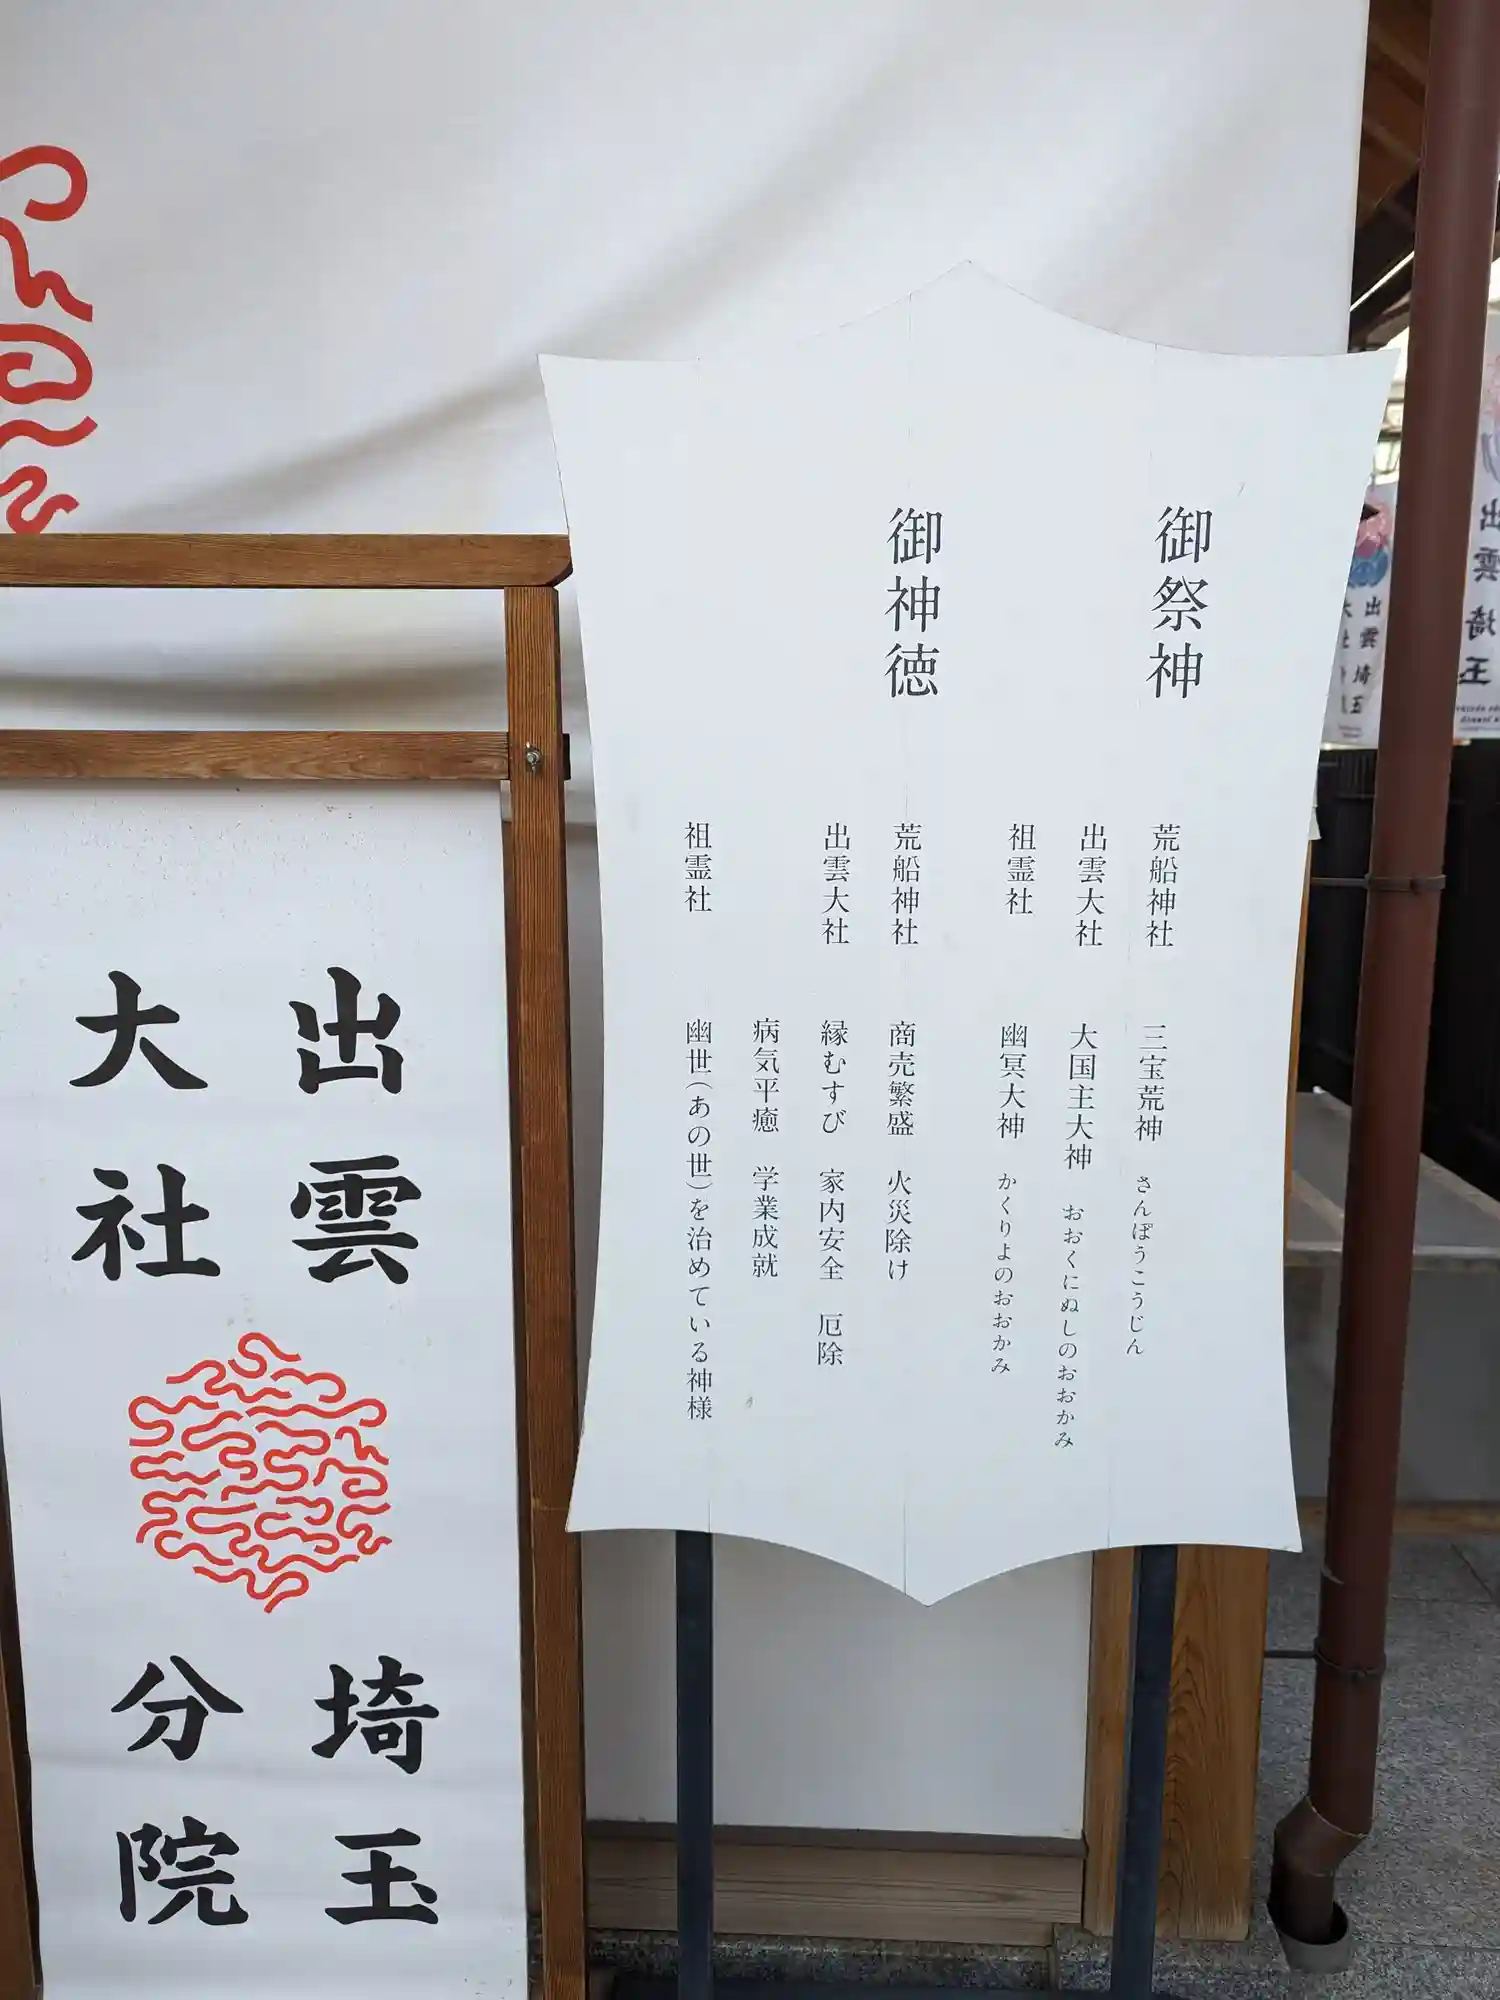 御祭神
荒船神社 三宝荒神 さんぽうこうじん
出雲大社 大国主大神 おおくにぬしのおおかみ
祖霊社 幽冥大神 かくりよのおおかみ
御神徳
荒船神社 商売繁盛 火災除け
出雲大社 縁むすび 家内安全 厄除
病気平癒 学業成就
祖霊社 幽世(あの世)を治めている神様
出雲
大社
埼玉
分院
出雲
大社
埼玉
出雲
埼玉